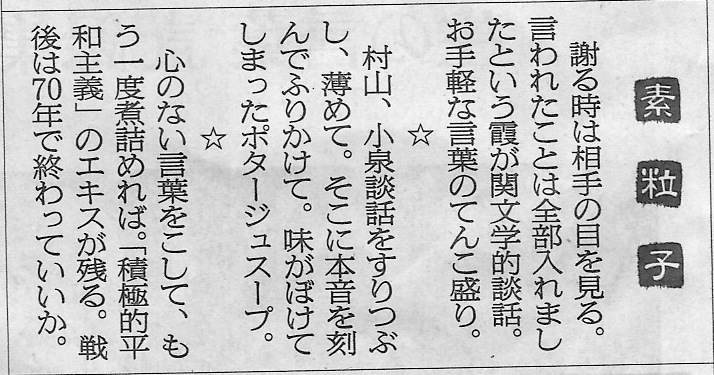 素粒子
謝る時は相手の目を見る。
言われたことは全部入れまし
たという霞が関文学的談話。
お手軽な言葉のてんこ盛り。
☆
村山、小泉談話をすりつぶ
し、薄めて。そこに本音を刻
んでふりかけて。味がぼけて
しまったポタージュスープ。
☆
心のない言葉をこして、も
う一度煮詰めれば。「積極的平
和主義」のエキスが残る。戦
後は70年で終わっていいか。